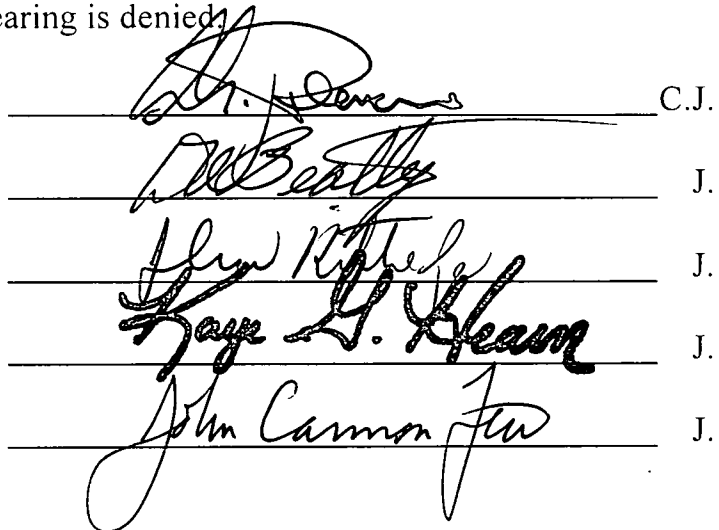 earing is denied.
C.J.
Beatty J.
J.
Kaye G. Hearn J.
John Cannon Few J.